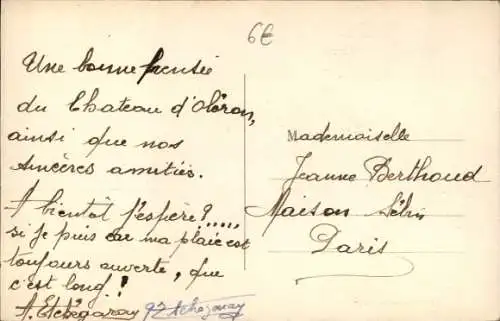 6€
Une bonne pensée
du Chateau d'Oléron,
ainsi que nos
sincères amitiés.
A bientôt j'espère?.....
si je puis car ma plaie est
toujours ouverte, que
c'est long!
A. Etchégaray
Mademoiselle
Jeanne Berthoud
Maison
Paris